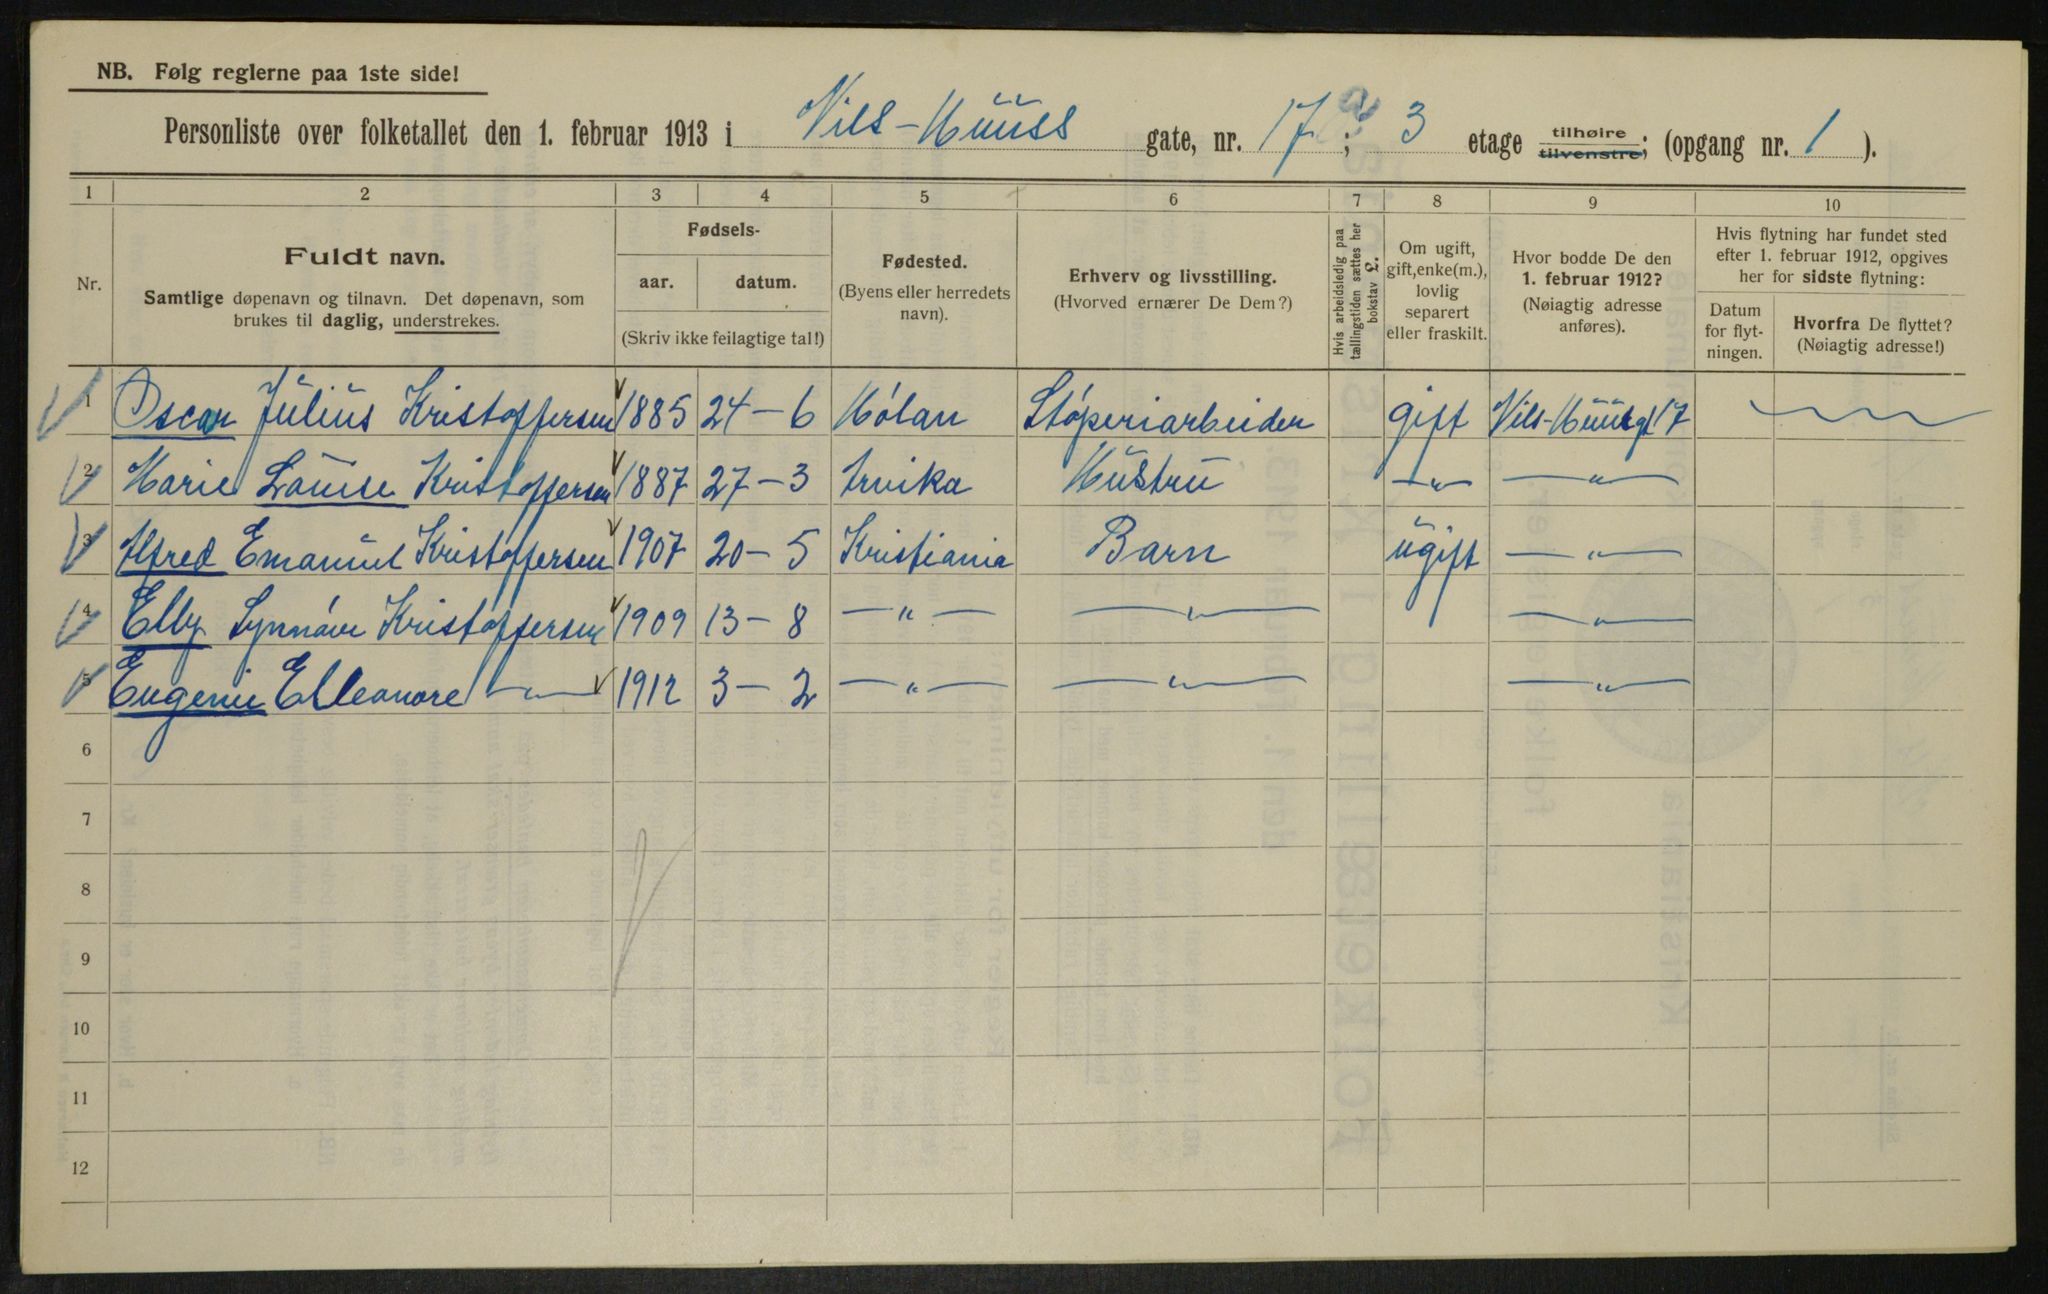 NB. Følg reglerne paa 1ste side!
Personliste over folketallet den 1. februar 1913 i Nils-Hüüss gate, nr. 17; 3 etage tilhøire tilvenstre; (opgang nr. 1).
1 2 3 4 5 6 7 8 9 10
Nr.
Fuldt navn.
Samtlige døpenavn og tilnavn. Det døpenavn, som
brukes til daglig, understrekes.
Fødsels-
aar. datum.
(Skriv ikke feilagtige tal!)
Fødested.
(Byens eller herredets
navn).
Erhverv og livsstilling.
(Hvorved ernærer De Dem?)
Hvis arbeidsledig paa
tællingstiden sættes her
bokstav L.
Om ugift,
gift, enke(m.),
lovlig
separert
eller fraskilt.
Hvor bodde De den
1. februar 1912?
(Nøiagtig adresse
anføres).
Hvis flytning har fundet sted
efter 1. februar 1912, opgives
her for sidste flytning:
Datum
for flyt-
ningen.
Hvorfra De flyttet?
(Nøiagtig adresse!)
1 Oscar Julius Kristoffersen 1885 24 – 6 Hólan Stóperiarbeider gift Nils-Hüüsgt 17
2 Marie Louise Kristoffersen 1887 27 – 3 Arvika Hustru — „ — — „ —
3 Alfred Emanuel Kristoffersen 1907 20 – 5 Kristiania Barn ugift — „ —
4 Elly Synnóve Kristoffersen 1909 13 – 8 — „ — — „ — — „ —
5 Eugenie Elleonore — „ — 1912 3 – 2 — „ — — „ — — „ —
6
7
8
9
10
11
12